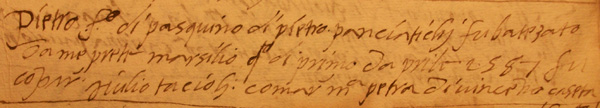 Pietro fo di pasquino di pietro panciatichj fu batezato
Da me prete marsilio fo di primo da 1587 fu
compar. Giulio tacioli. comar Ma petra di vincentio